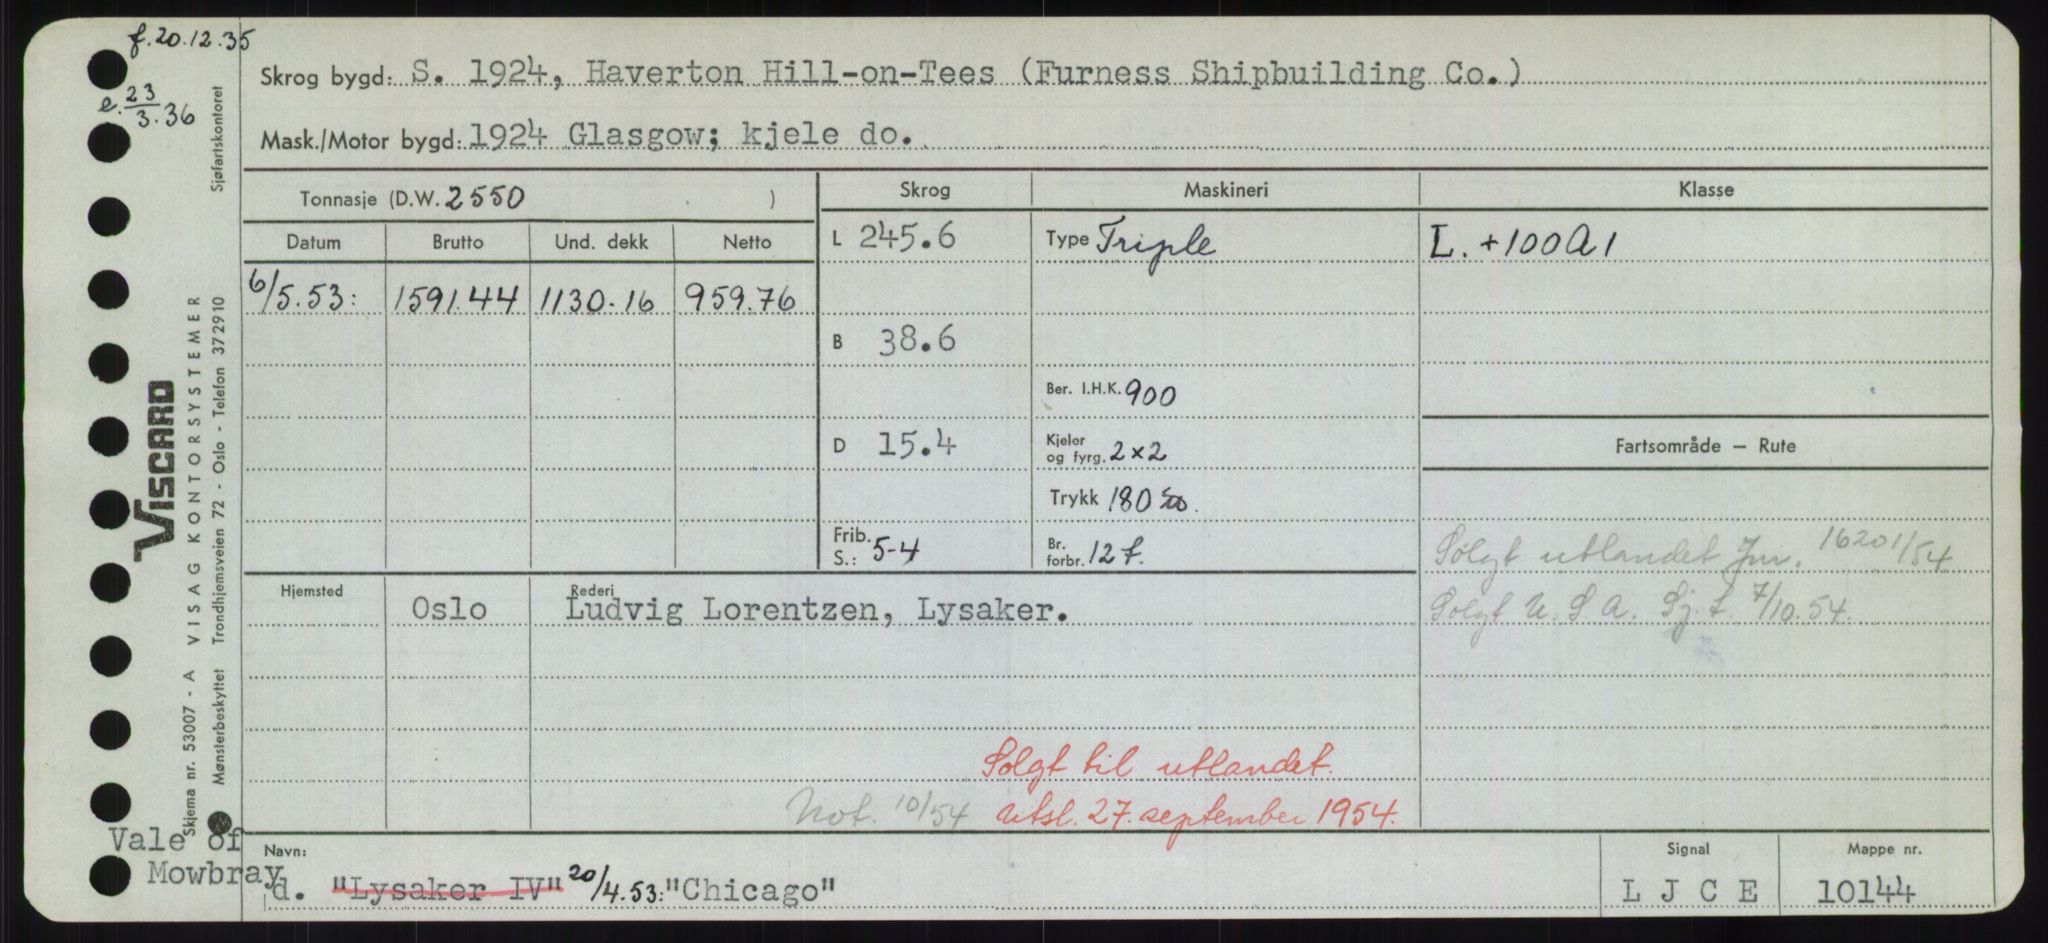 f. 20.12.35
e. 23/3.36
Skrog bygd: S. 1924, Haverton Hill-on-Tees (Furness Shipbuilding Co.)
Mask./Motor bygd: 1924 Glasgow; kjele do.
Tonnasje (D.W. 2550 )
Skrog Maskineri Klasse
Datum Brutto Und. dekk Netto
L 245.6 Type Triple L. +100A1
6/5.53: 1591.44 1130.16 959.76
B 38.6
Ber. I.H.K. 900
D 15.4 Kjeler og fyrg. 2x2
Fartsområde – Rute
Trykk 180
Frib. S.: 5-4 Br. forbr. 12 t.
Solgt utlandet Jnr. 16201/54
Solgt U.S.A. Sj.t. 7/10.54.
Hjemsted Rederi
Oslo Ludvig Lorentzen, Lysaker.
Solgt til utlandet.
Not. 10/54 Utsl. 27. september 1954.
Vale of
Mowbray
Navn: Signal Mappe nr.
d. "Lysaker IV" 20/4.53: "Chicago" L J C E 10144
VISCARD
Skjema nr. 53007 - A VISAG KONTORSYSTEMER
Mønsterbeskyttet Trondhjemsveien 72 - Oslo - Telefon 372910 Sjøfartskontoret